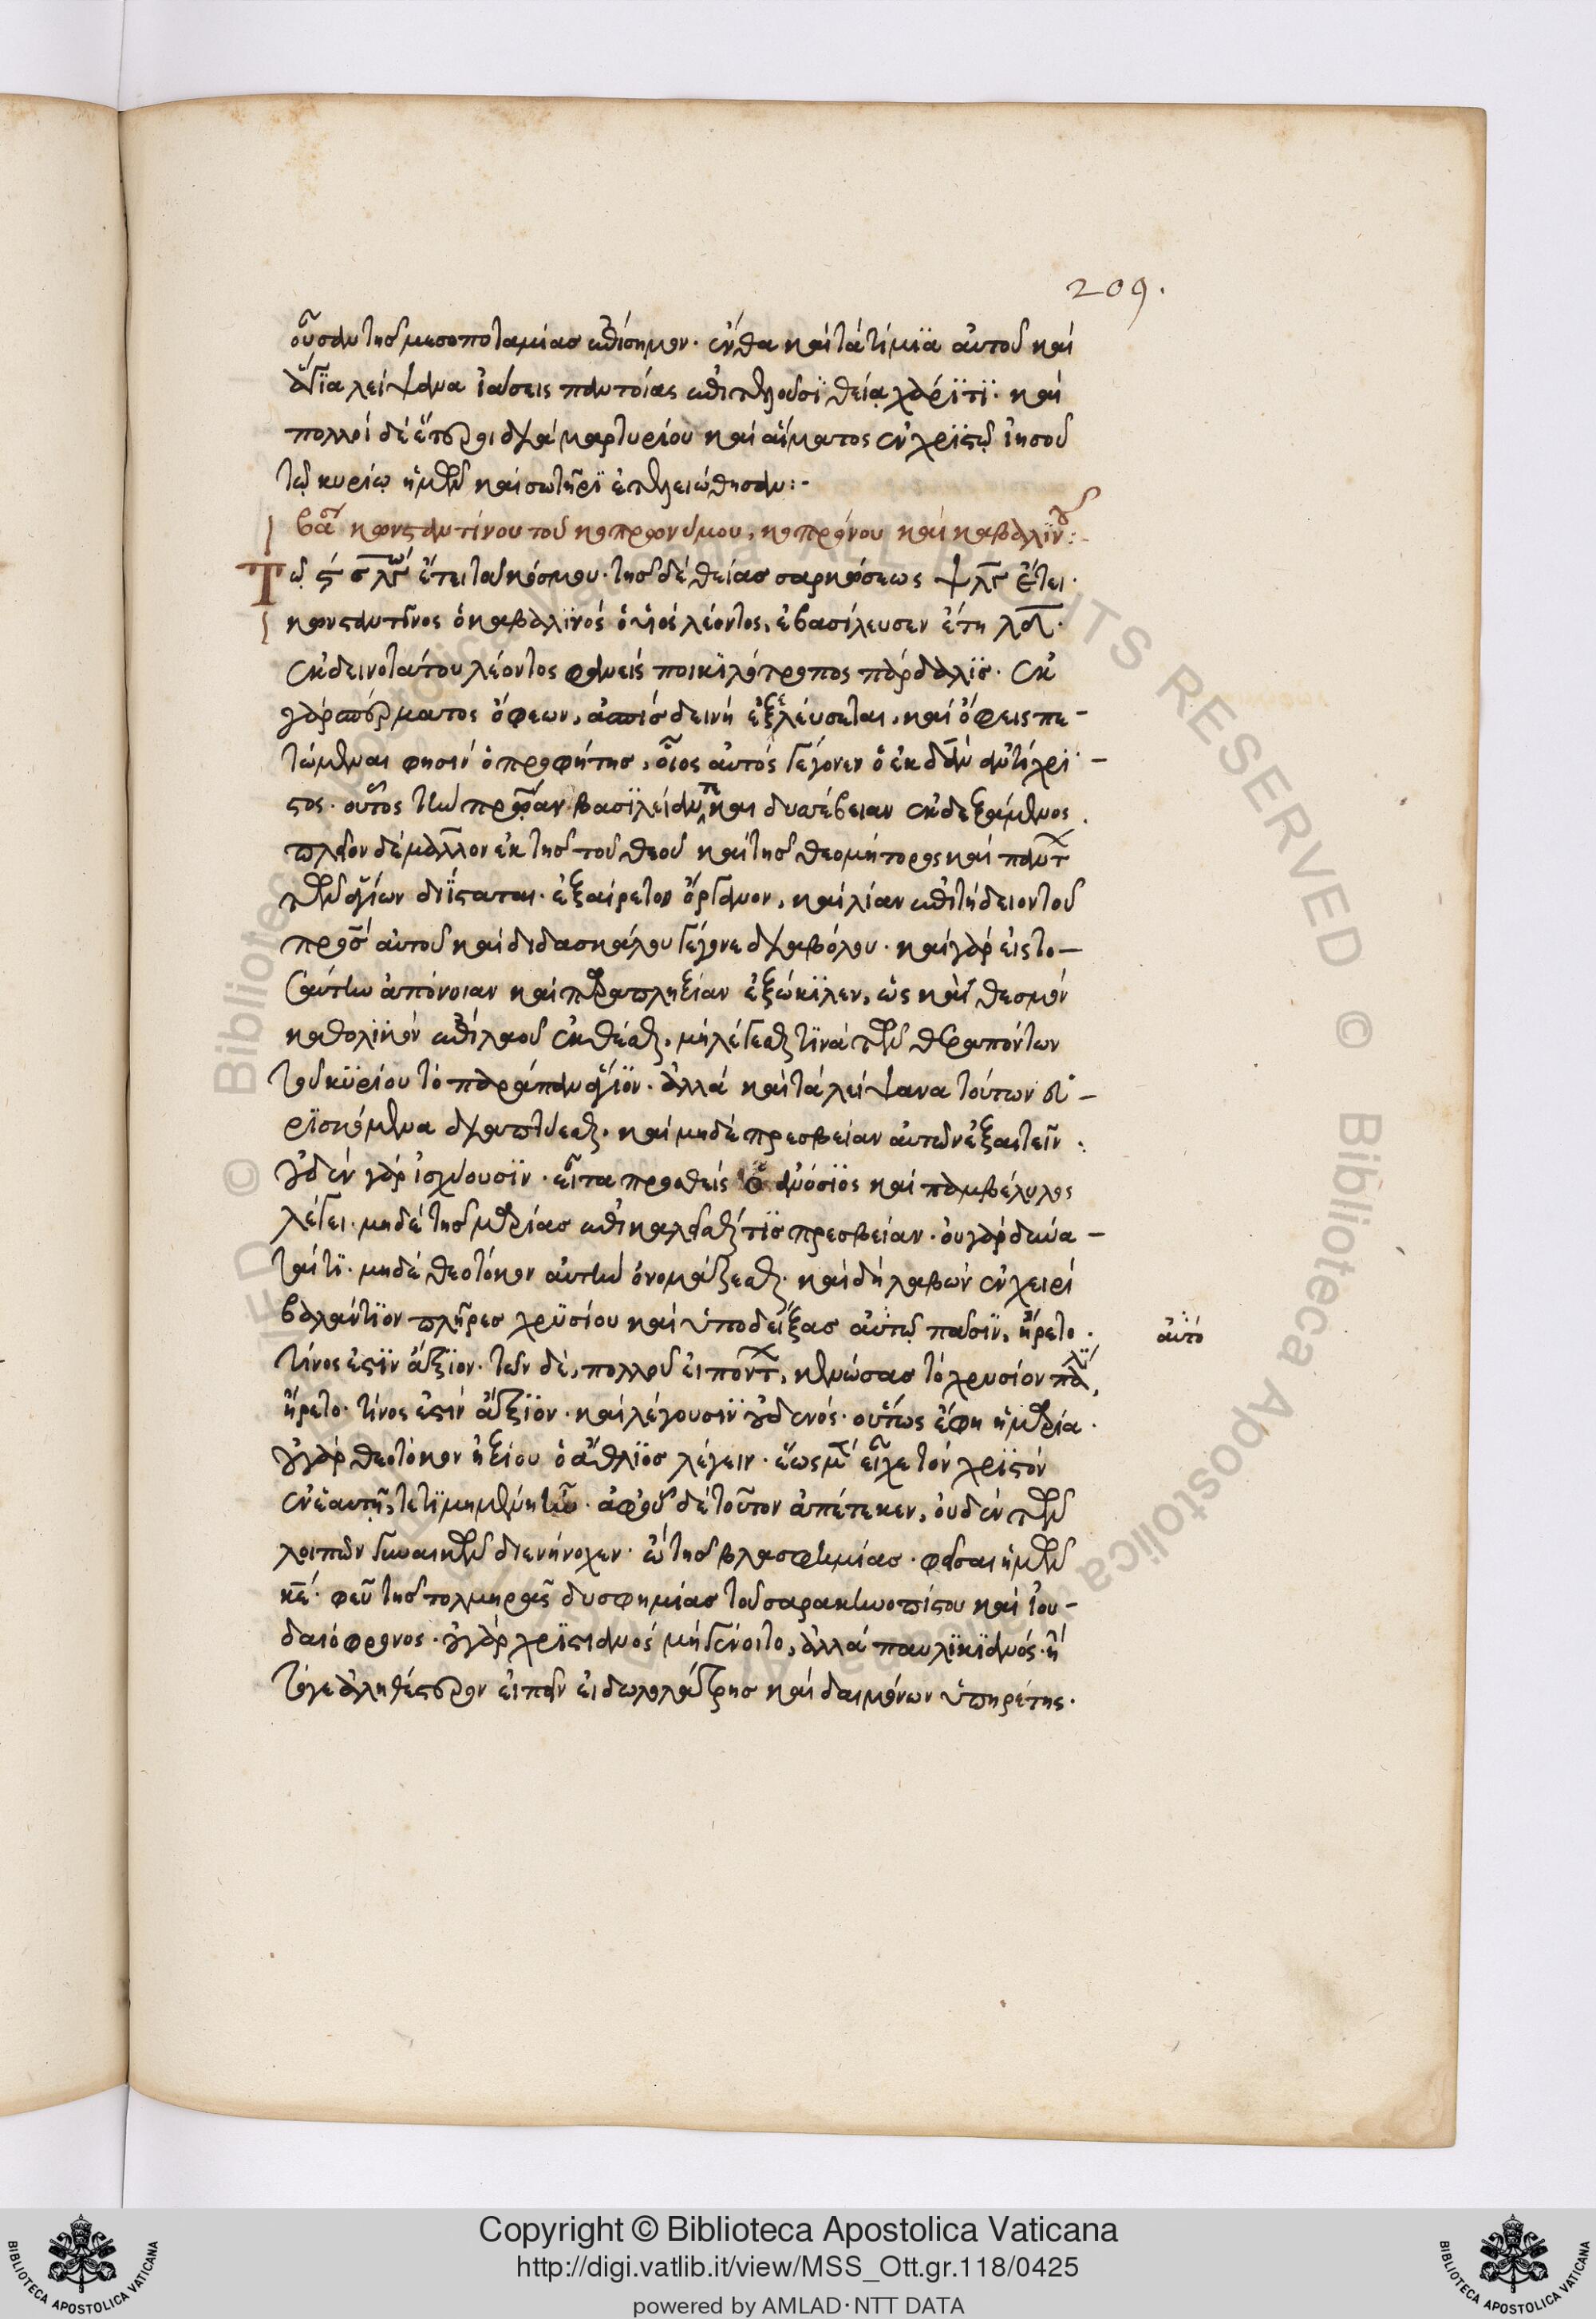 209.
οὖσαν τῆς μεσοποταμίας ἐπίσημον· ἔνθα καὶ τὰ τίμϊα αὐτοῦ καὶ
ἅγϊα λείψανα ἰάσεις παντοίας ἐπιτελοῦσϊ θείᾳ χάρϊτϊ· καὶ
πολλοὶ δὲ ἕτεροι διὰ μαρτυρίου καὶ αἵματος ἐν χριστῷ ἰησοῦ
τῷ κυρίῳ ἡμῶν καὶ σωτῆρϊ ἐτελειώθησαν:-
κωνσταντίνου τοῦ κοπρωνύμου, κοπρόνου καὶ καβαλίνου:-
Τῷ ϛσλγ ἔτει τοῦ κόσμου· τῆς δὲ θείας σαρκώσεως ψλγ ἔτει·
κωνσταντῖνος ὁ καβαλϊνὸς ὁ υἱὸς λέοντος, ἐβασίλευσεν ἔτη λδ·
ἐκ δεινοτάτου λέοντος φανεὶς ποικϊλότροπος πάρδαλϊς· ἐκ
γὰρ σπέρματος ὄφεων, ἀσπὶς δεινὴ ἐξελεύσεται, καὶ ὄφεις πε-
τώμεναι φησιν ὁ προφήτης, οἷος αὐτὸς γέγονεν ὁ ἐκ δὰν ἀντίχρι-
στος· οὗτος τὴν πατρῴαν βασϊλείαν καὶ δυσσέβειαν ἐκδεξάμενος.
πλέον δὲ μᾶλλον ἐκ τῆς τοῦ θεοῦ καὶ τῆς θεομήτορος καὶ πάντων
τῶν ἁγίων διΐσταται· ἐξαίρετον ὄργανον, καὶ λίαν ἐπιτήδειον τοῦ
πατρὸς αὐτοῦ καὶ διδασκάλου γέγονε διαβόλου· καὶ γὰρ εἰς το-
σαύτην ἀπόνοιαν καὶ παραπληξίαν ἐξώκϊλεν, ὡς καὶ θεσμὸν
καθολϊκὸν ἐπὶ λαοῦ ἐκθέσθαι, μὴ λέγεσθαι τϊνὰ τῶν θεραπόντων
τοῦ κϋρίου τὸ παράπαν ἅγϊον· ἀλλὰ καὶ τὰ λείψανα τούτων εὑ-
ρϊσκόμενα διαπτύεσθαι· καὶ μηδὲ πρεσβείαν αὐτῶν ἐξαιτεῖν·
οὐδὲν γὰρ ἰσχύουσϊν· εἶτα προσθεὶς ὁ ἀνόσϊος καὶ παμβέβηλος
λέγει· μηδὲ τῆς μαρίας ἐπικαλεῖσθαι τϊς πρεσβείαν· οὐ γὰρ δύνα-
ταί τϊ· μηδὲ θεοτόκον αὐτὴν ὀνομάζεσθαι· καὶ δὴ λαβὼν ἐν χειρὶ
βαλάντϊον πλῆρες χρϋσίου καὶ ὑποδείξας αὐτῷ πᾶσϊν, ἤρετο·
αὐτὸ
τίνος ἐστϊν ἄξϊον· τῶν δὲ, πολλοῦ εἰπόντων, κενώσας τὸ χρυσίον πάλιν,
ἤρετο· τίνος ἐστὶν ἄξϊον· καὶ λέγουσϊν οὐδενός· οὕτως ἔφη ἡ μαρία·
οὐ γὰρ θεοτόκον ἠξίου ὁ ἄθλϊος λέγειν· ἕως μὲν εἶχε τὸν χρϊστὸν
ἐν ἑαυτῇ, τετϊμημένη ἦν· ἀφ' οὗ δὲ τοῦτον ἀπέτεκεν, οὐδὲν τῶν
λοιπῶν γυναικῶν διενήνοχεν· ὢ τῆς βλασφημίας· φεῖσαι ἡμῶν
κε· φεῦ τῆς τολμηρᾶς δυσφημίας τοῦ σαρακηνοπίστου καὶ ἰου-
δαιόφρονος· οὐ γὰρ χρϊστιανὸς μὴ γένοιτο, ἀλλὰ παυλϊκϊανός· ἢ
τό γε ἀληθέστερον εἰπεῖν εἰδωλολάτρης καὶ δαιμόνων ὑπηρέτης·
Copyright © Biblioteca Apostolica Vaticana
http://digi.vatlib.it/view/MSS_Ott.gr.118/0425
powered by AMLAD·NTT DATA